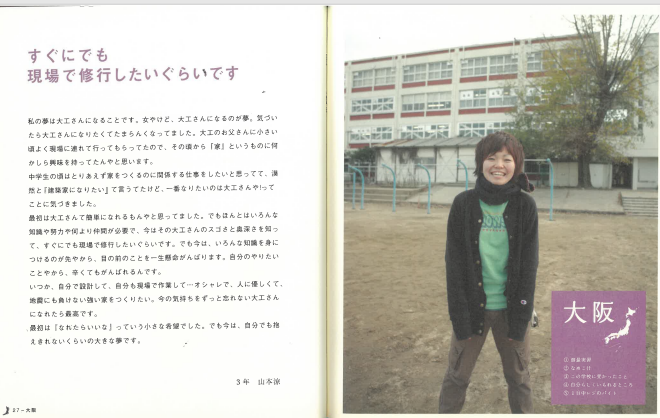 すぐにでも
現場で修行したいぐらいです
私の夢は大工さんになることです。女やけど、大工さんになるのが夢。気づい
たら大工さんになりたくてたまらんくなってました。大工のお父さんに小さい
頃よく現場に連れて行ってもらってたので、その頃から「家」というものに何
かしら興味を持ってたんやと思います。
中学生の頃はとりあえず家をつくるのに関係する仕事をしたいと思ってて、漠
然と「建築家になりたい」て言うてたけど、一番なりたいのは大工さんや!って
ことに気づきました。
最初は大工さんて簡単になれるもんやと思ってました。でもほんとはいろんな
知識や努力や何より仲間が必要で、今はその大工さんのスゴさと奥深さを知っ
て、すぐにでも現場で修行したいぐらいです。でも今は、いろんな知識を身に
つけるのが先やから、目の前のことを一生懸命がんばります。自分のやりたい
ことやから、辛くてもがんばれるんです。
いつか、自分で設計して、自分も現場で作業して…オシャレで、人に優しくて、
地震にも負けない強い家をつくりたい。今の気持ちをずっと忘れない大工さん
になれたら最高です。
最初は「なれたらいいな」っていう小さな希望でした。でも今は、自分でも抱
えきれないくらいの大きな夢です。
3年 山本涼
27-大阪
大阪
① 測量実習
② なみこけ
③ この学校に来かったこと
④ 自分らしくいられるところ